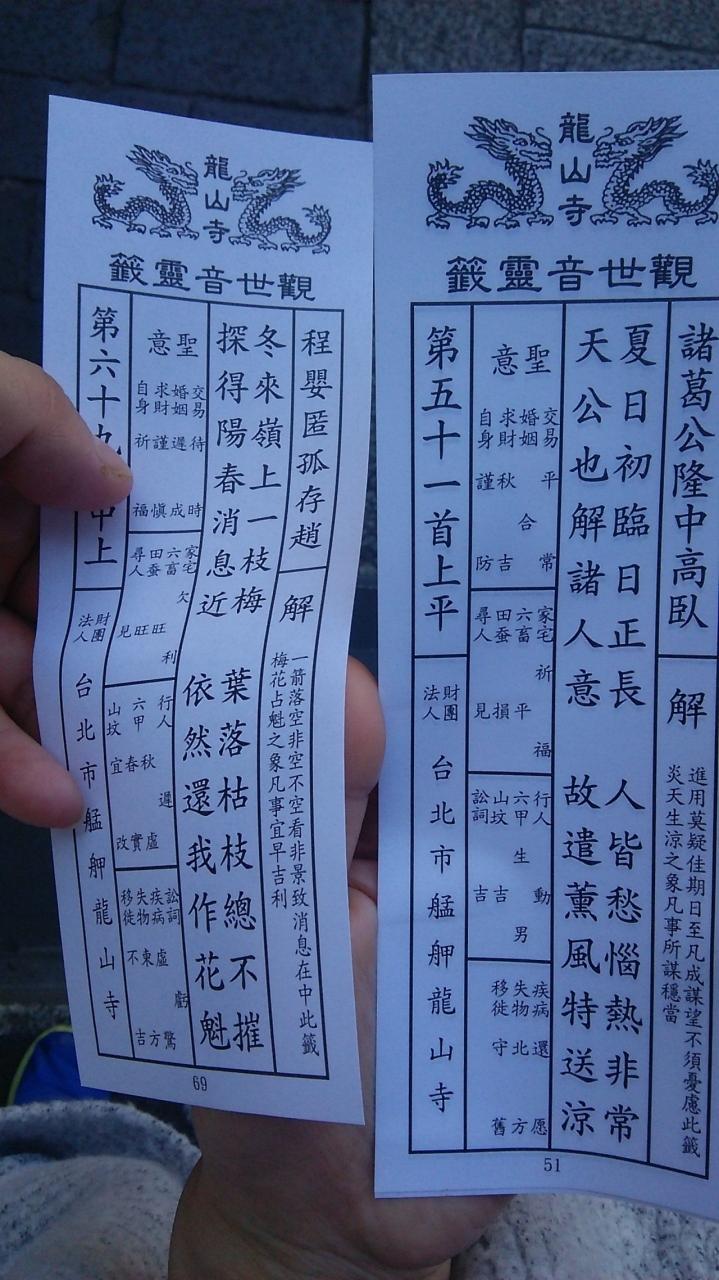 龍山寺
觀世音靈籤
程嬰匿孤存趙
解
一箭落空非空不空看非景致消息在中此籤
梅花占魁之象凡事宜早吉利
冬來嶺上一枝梅 葉落枯枝總不摧
探得陽春消息近 依然還我作花魁
聖意
交易 待時
婚姻 遲成
求財 謹慎
自身 祈福
家宅 欠利
六畜 旺
田蚕 旺
尋人 見
行人 遲
六甲 秋春虛實
山坟 宜改
訟詞 虧
疾病 虛驚
失物 東方
移徙 不吉
第六十九 中上
財團法人台北市艋舺龍山寺
69
龍山寺
觀世音靈籤
諸葛公隆中高臥
解
進用莫疑佳期日至凡成謀望不須憂慮此籤
炎天生涼之象凡事所謀穩當
夏日初臨日正長 人皆愁惱熱非常
天公也解諸人意 故遣薰風特送涼
聖意
交易 平常
婚姻 合
求財 秋吉
自身 謹防
家宅 祈福
六畜 平
田蚕 損
尋人 見
行人 動
六甲 生男
山坟 吉
訟詞 吉
疾病 還愿
失物 北方
移徙 守舊
第五十一首上平
財團法人台北市艋舺龍山寺
51